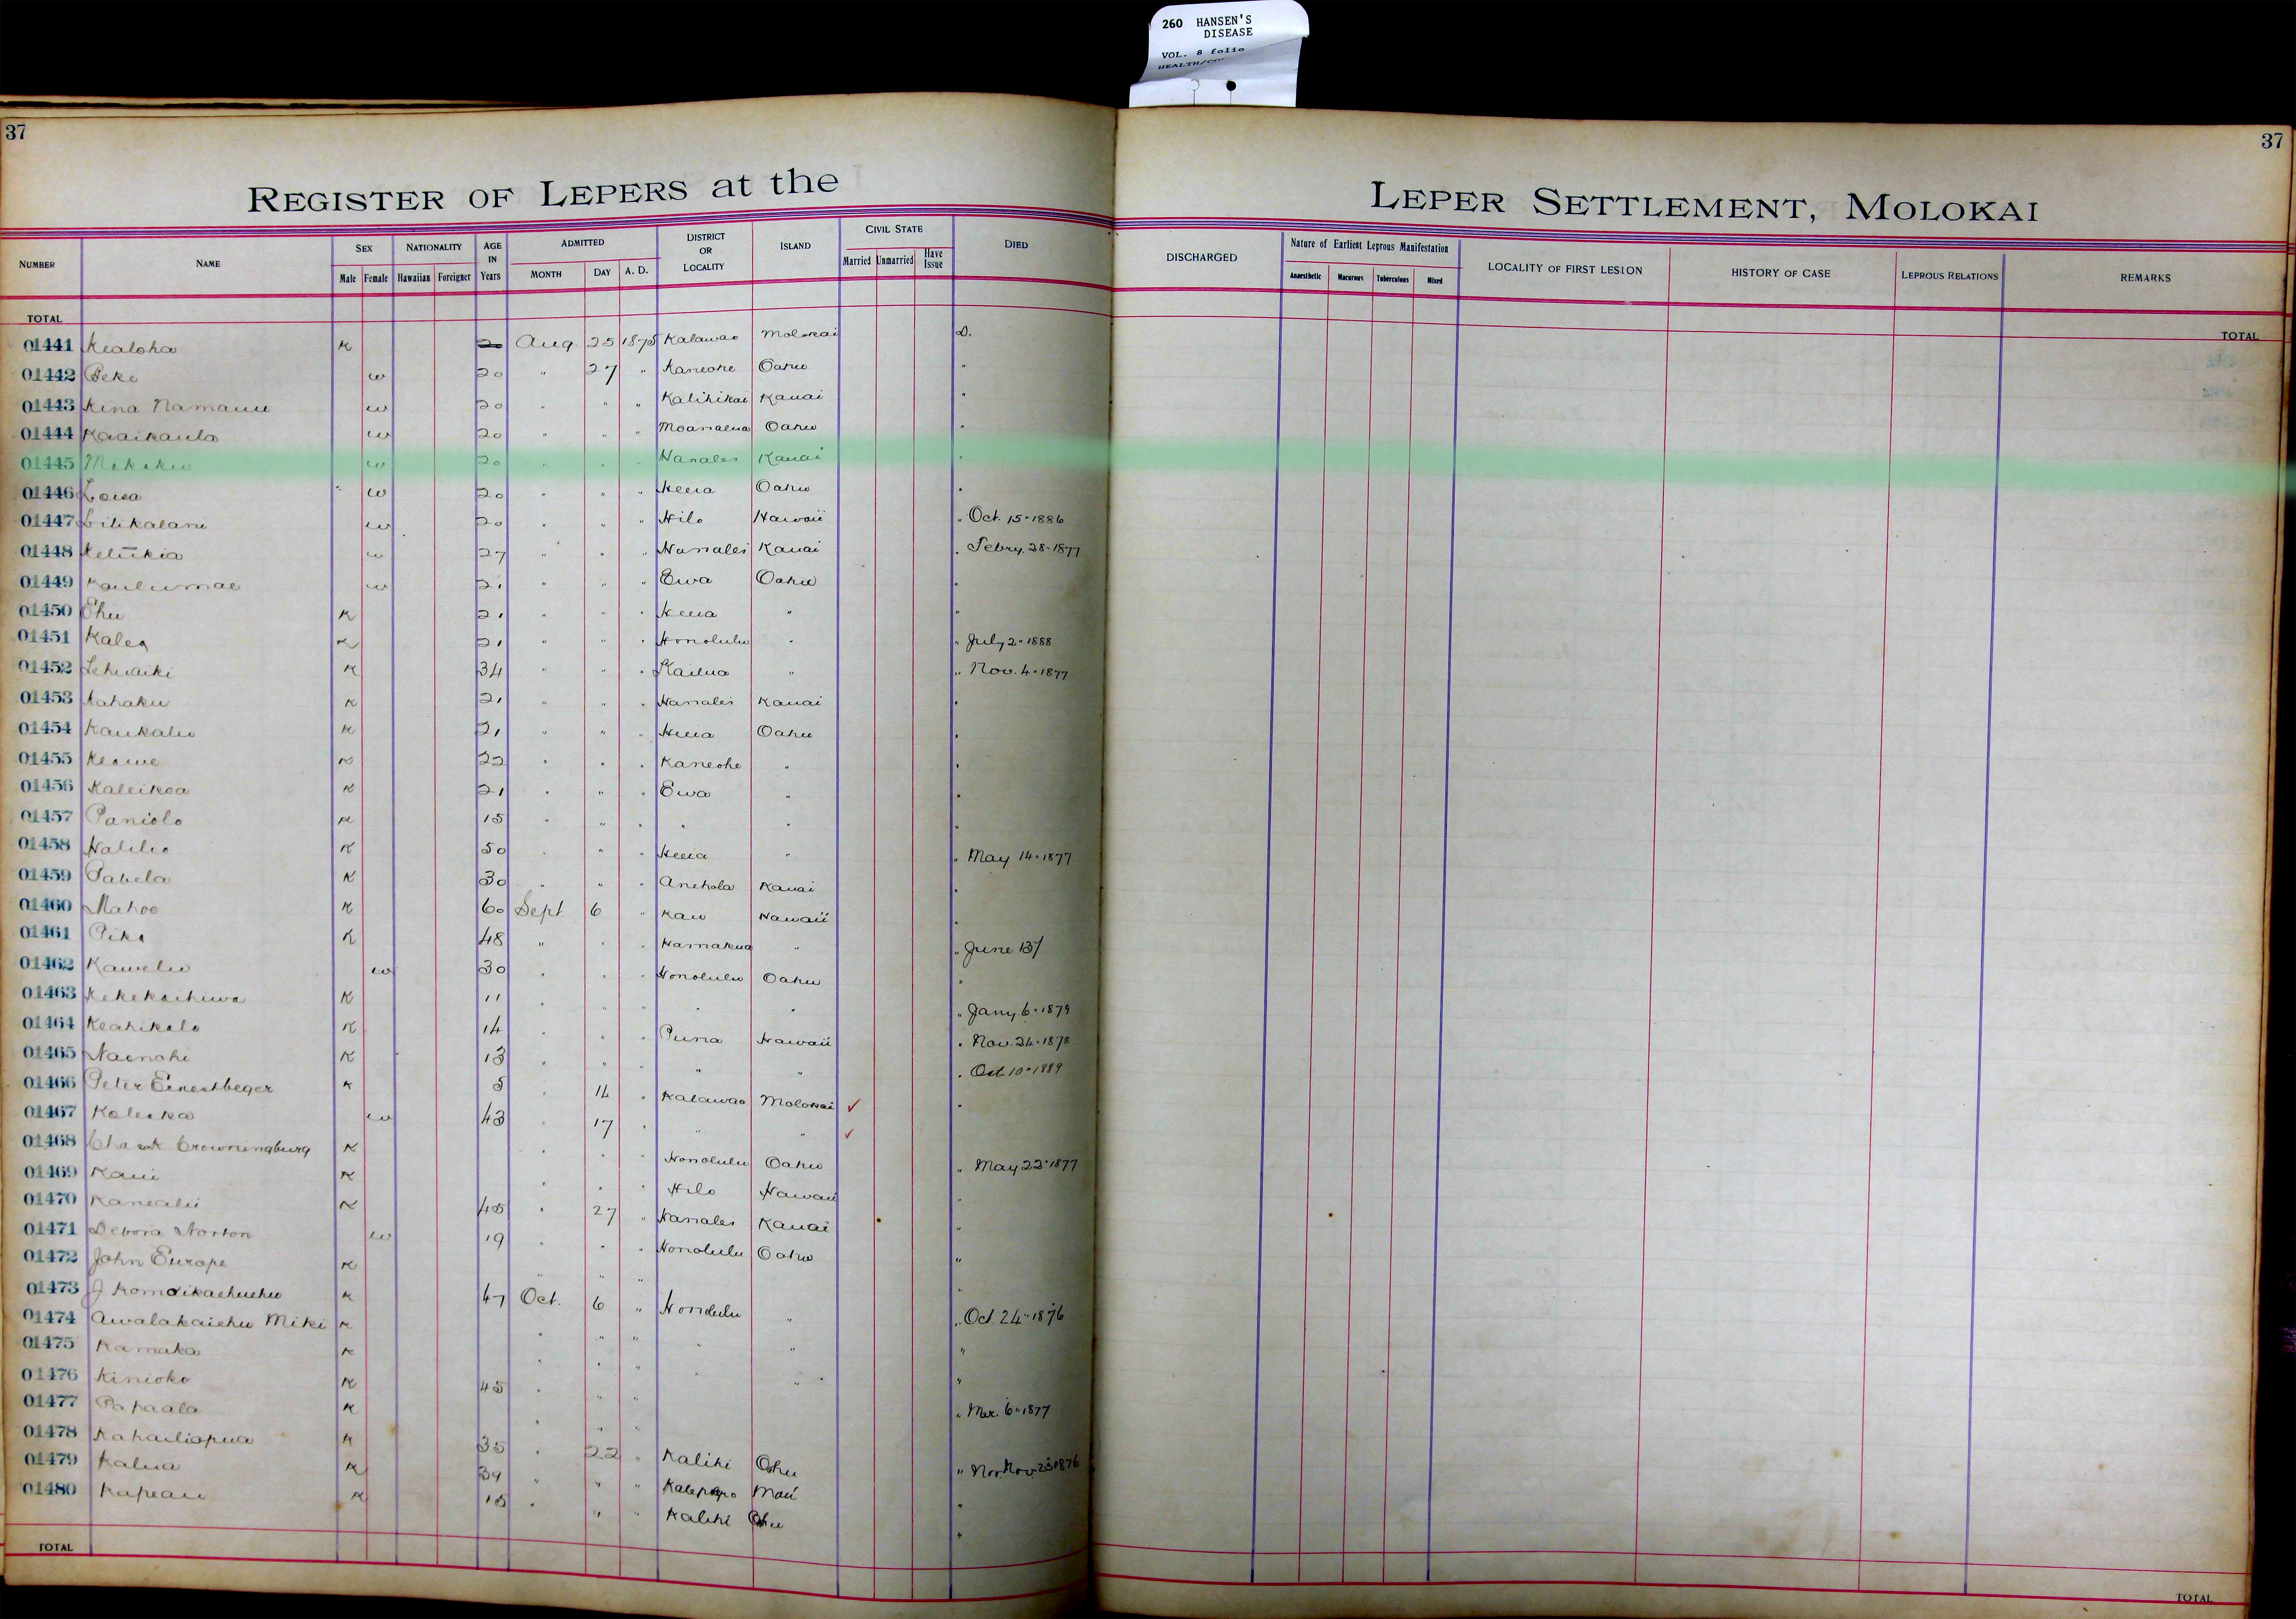 260 HANSEN'S
DISEASE
VOL. 8 folio
37
37
REGISTER OF LEPERS at the
LEPER SETTLEMENT, MOLOKAI
NUMBER NAME SEX Male Female NATIONALITY Hawaiian Foreigner AGE IN Years ADMITTED MONTH DAY A. D. DISTRICT OR LOCALITY ISLAND CIVIL STATE Married Unmarried Have Issue DIED DISCHARGED Nature of Earliest Leprous Manifestation Anaesthetic Macurous Tuberculous Mixed LOCALITY OF FIRST LESION HISTORY OF CASE LEPROUS RELATIONS REMARKS
TOTAL TOTAL
01441 Kealoha K 20 Aug. 25 1875 Kalawao Molokai D.
01442 Peke w 20 " 27 " Kaneohe Oahu "
01443 Kina Namauu w 20 " " " Kalihikai Kauai "
01444 Kaaikaula w 20 " " " Moanalua Oahu "
01445 w 20 " " " Hanalei Kauai "
01446 Loisa w 20 " " " Heeia Oahu "
01447 Lilikalani w 20 " " " Hilo Hawaii " Oct. 15 - 1886
01448 Keliikia w 27 " " " Hanalei Kauai " Febry. 28 - 1877
01449 Kaulumae w 21 " " " Ewa Oahu "
01450 Ehu K 21 " " " Heeia " "
01451 Kalea K 21 " " " Honolulu " " July 2 - 1888
01452 Lehuaiki K 34 " " " Kailua " " Nov. 4 - 1877
01453 Kahaku K 21 " " " Hanalei Kauai "
01454 Kaukaliu K 21 " " " Heeia Oahu "
01455 Keawe K 22 " " " Kaneohe " "
01456 Kaleikoa K 21 " " " Ewa " "
01457 Paniolo K 15 " " " " " "
01458 Halilio K 50 " " " Heeia " " May 14 - 1877
01459 Pabela K 30 " " " Anehola Kauai "
01460 Mahoe K 60 Sept 6 " Kau Hawaii "
01461 K 48 " " " Hamakua " " June 13/
01462 Kawelu w 30 " " " Honolulu Oahu "
01463 Kekekaihiwa K 11 " " " " " " Jany. 6 - 1879
01464 Keahikolo K 14 " " " Puna Hawaii " Nov. 24 - 1878
01465 Nainohi K 13 " " " " " " Oct 10 - 1889
01466 Peter Ernestbeger K 5 " 14 " Kalawao Molokai ✓ "
01467 Koleka w 43 " 17 " " " ✓
01468 Crowningburg K " " " Honolulu Oahu " May 22 - 1877
01469 Kaui K " " " Hilo Hawaii "
01470 Kanealii K 45 " 27 " Hanalei Kauai "
01471 Debora Norton w 19 " " " Honolulu Oahu "
01472 John Europe K " " " "
01473 J Komoikaehuehu K 47 Oct. 6 " Honolulu " " Oct. 24 - 1876
01474 Awalakaiehu Miki K " " " " " "
01475 Kamaka K " " " " " "
01476 Kinioko K 45 " " "
01477 Papaala K " " " " Mar. 6 - 1877
01478 Kahailiopua K 35 " 22 " Kalihi Oahu " Nov. 25 1876
01479 Kalua K 39 " " " Kalepopo Maui "
01480 Kapeau K 15 " " " Kalihi Oahu "
TOTAL TOTAL